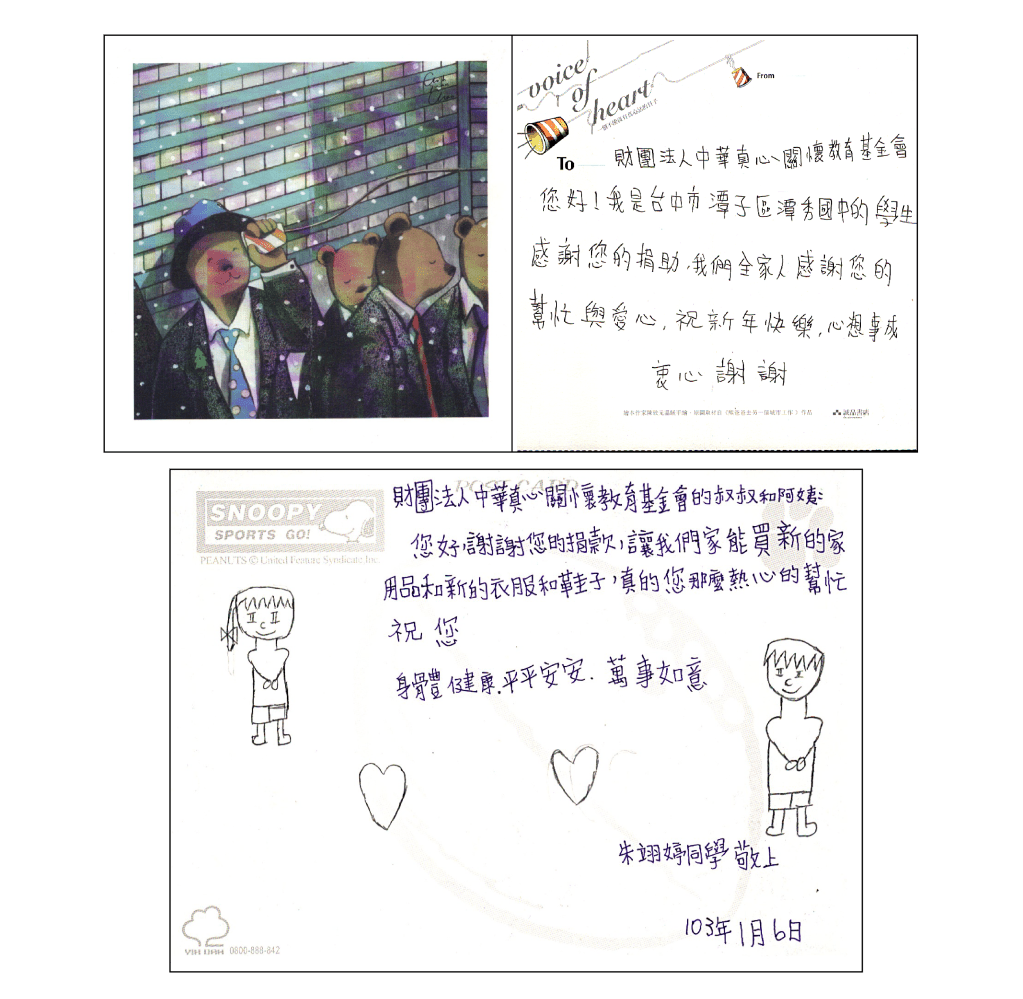 voice
of
heart
From
To
財團法人中華真心關懷教育基金會
您好!我是台中市潭子區潭秀國中的學生
感謝您的捐助,我們全家人感謝您的
幫忙與愛心,祝新年快樂,心想事成
衷心謝謝
誠品書店
POST CARD
SNOOPY
SPORTS GO!
PEANUTS © United Feature Syndicate, Inc.
財團法人中華真心關懷教育基金會的叔叔和阿姨:
您好,謝謝您的捐款,讓我們家能買新的家
用品和新的衣服和鞋子,真的您那麼熱心的幫忙
祝 您
身體健康.平平安安.萬事如意
朱翊婷同學敬上
103年1月6日
0800-888-842